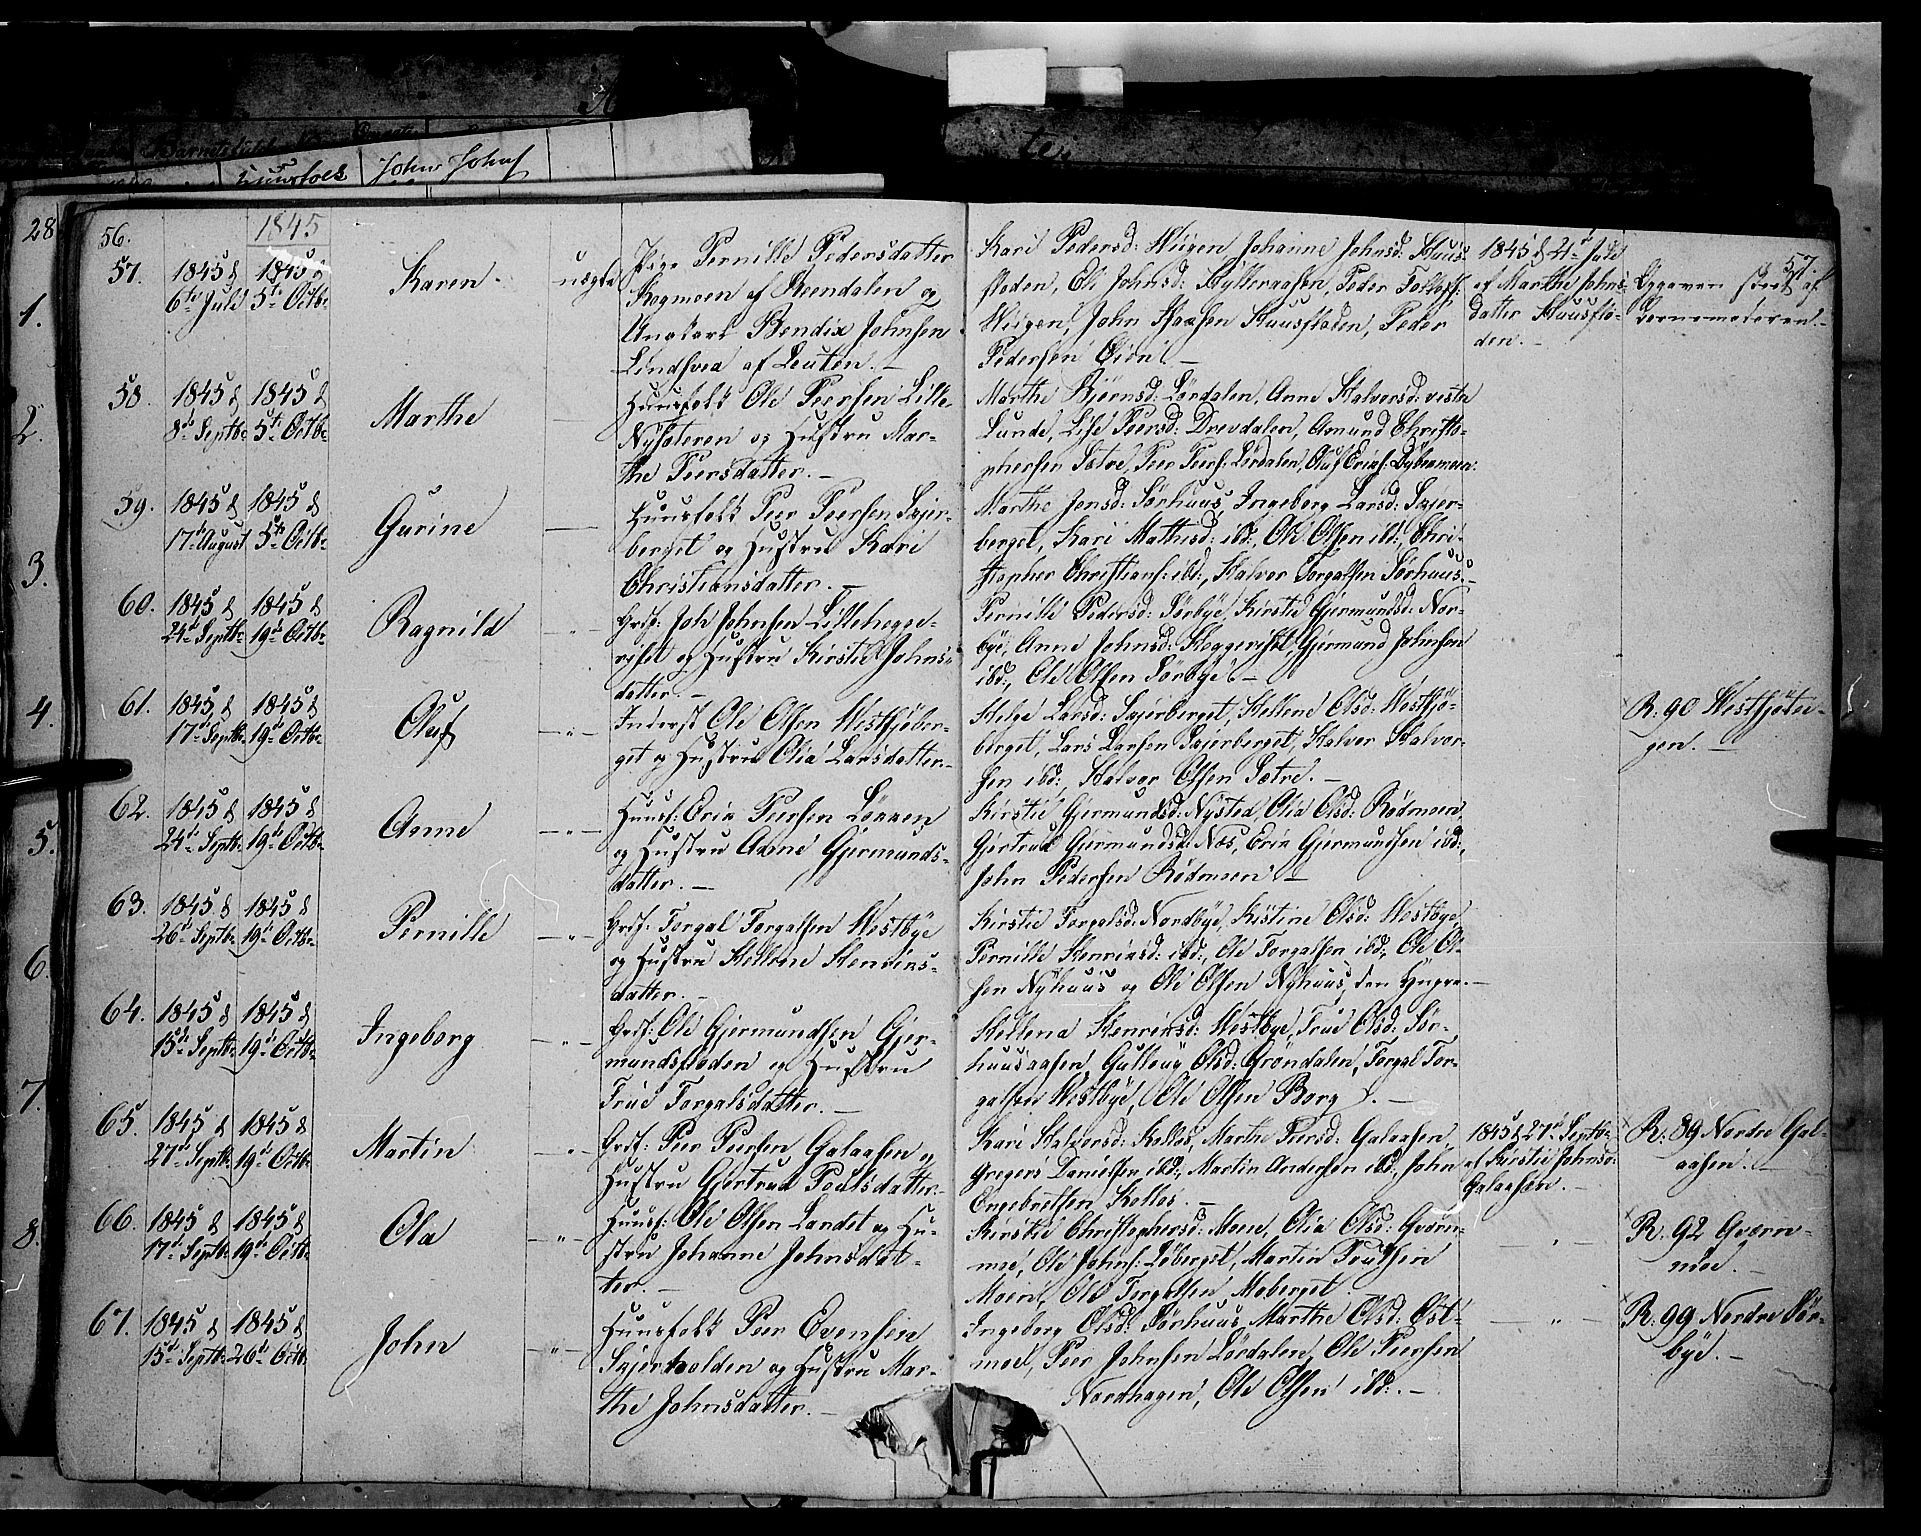 Barnets
John Johns
28
1.
2.
3.
4.
5.
6.
7.
8.
56.
1845
57.
57. 1845 d 6te Juli
1845 d 5te Octbr
Karen.
uægte
Pige Pernille Pedersdatter
Kogmoen af Reendalen og
Ungkarl Bendix Johnsen
Lindsvea af Leuten. —
Kari Pedersd: Wiigen, Johanne Johnsd: Kuus-
floden, Eli Johnsd: Hytteraasen, Peder Tollefs:
Wiigen, John Hansen Kuusfloden, Peder
Pedersen Eien. —
1845 d 21de Juli
af Marthe Johns-
datter Kuusflo-
den. —
Opgaven skeet af
Barnemoderen. —
58. 1845 d 8de Septbr
1845 d 5te Octbr
Marthe
Huusfolk Ole Peersen Lille-
Nysæteren og Hustru Mar-
the Peersdatter. —
Marthe Björnsd: Lørdalen, Anne Halvorsd: vestre
Lunde, Lise Peersd: Drevdalen, Amund Christo-
phersen Sætre, Peer Peers: Lørdalen, Oluf Erics: Lybekmoen.
59. 1845 d 17de August
1845 d 5te Octbr
Gurine
Huusfolk Peer Peersen Skjær-
berget og Hustru Kari
Christiansdatter. —
Marthe Jensd: Sørhuus, Ingeborg Larsd: Skjær-
berget, Kari Mathisd: ibd:, Ole Olsen ibd:, Chri-
stopher Christians: ibd:, Halvor Torgalsen Sørhuus. —
60. 1845 d 24de Septbr
1845 d 19de Octbr
Ragnild
Hrsf: Joh Johnsen Lillehegge-
riset og Hustru Kirstie Johns-
datter. —
Pernille Pedersd: Sørbye, Kirstie Gjermundsd: Nor-
bye, Anne Johnsd: Heggeriset, Gjermund Johnsen
ibd:, Ole Olsen Sørbye. —
61. 1845 d 17de Septbr
1845 d 19de Octbr
Oluf
Inderst Ole Olsen Westsjøber-
get og Hustru Olia Larsdatter. —
Helge Larsd: Skjærberget, Hellene Olsd: Westsjø-
berget, Lars Larsen Skjærberget, Halvor Halvor-
sen ibd:, Halvor Olsen Sætre. —
R: 90 Westsjøte-
gen. —
62. 1845 d 24de Septbr
1845 d 19de Octbr
Anne
Huusf: Eric Peersen Løkken
og Hustru Anne Gjermunds-
datter. —
Kirstie Gjermundsd: Nysted, Olia Olsd: Rødmoen,
Gjertrud Gjermundsd: Næs, Eric Gjermundsen ibd:,
John Pedersen Rødmoen. —
63. 1845 d 26de Septbr
1845 d 19de Octbr
Pernille
Hrsf: Torgal Torgalsen Westbye
og Hustru Hellene Henriks-
datter. —
Kirstie Torgalsd: Nordbye, Kistine Olsd: Westbye,
Pernille Henriksd: ibd:, Ole Torgalsen ibd:, Ole Ol-
sen Nyhuus og Ole Olsen Nyhuus, den Yngre. —
64. 1845 d 15de Septbr
1845 d 19de Octbr
Ingeborg
Hrsf: Ole Gjermundsen Gjer-
mundsfloden og Hustru
Frue Torgalsdatter. —
Hellena Henriksd: Westbye, Frue Olsd: Sør-
huusaasen, Gulloug Olsd: Grøndalen, Torgal Tor-
galsen Westbye, Ole Olsen Borg. —
65. 1845 d 27de Septbr
1845 d 19de Octbr
Martin
Hrsf: Peer Peersen Galaasen og
Hustru Gjertrud Poulsdatter. —
Kari Halvorsd: Kolles, Marthe Peersd: Galaasen,
Gregers Danielsen ibd:, Martin Andersen ibd:, John
Engebretsen Kolles. —
1845 d 27de Septbr
af Kirstie Johnsd:
Galaasen. —
R: 89 Nordre Gal-
aasen. —
66. 1845 d 17de Septbr
1845 d 19de Octbr
Ola
Huusf: Ole Olsen Landet og Hu-
stru Johanne Johnsdat-
ter. —
Kirstie Christophersd: Moen, Olia Olsd: Gværn-
moe, Ole Johns: Løberget, Martin Poulsen
Moen, Ole Torgalsen Moberget.
R: 92 Gværn-
moe. —
67. 1845 d 15de Septbr
1845 d 26de Octbr
John
Huusfolk Peer Evensen
Skjærholden og Hustru Mar-
the Johnsdatter. —
Ingeborg Olsd: Sørhuus, Marthe Olsd: Øst-
moe, Peer Johnsen Lørdalen, Ole Peersen
Nordhagen, Ole Olsen ibd:. —
R: 99 Nordre Sør-
bye. —